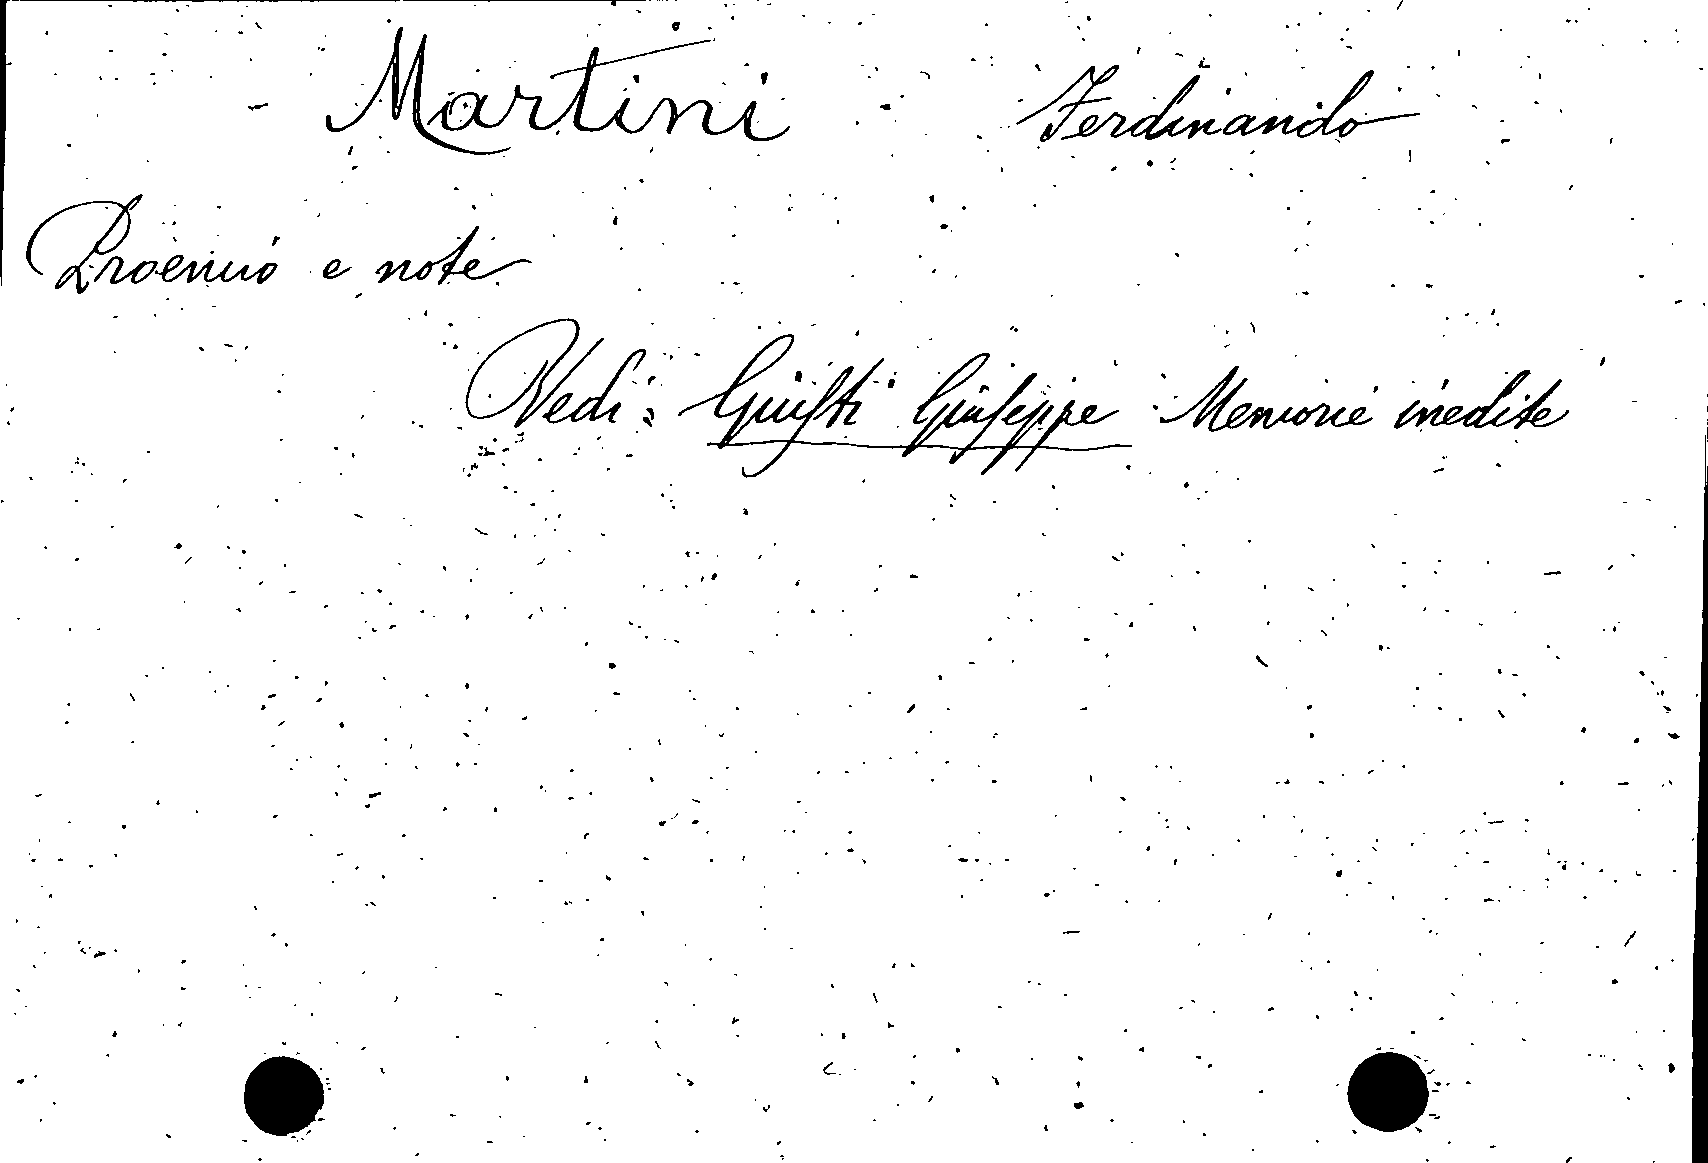 Martini Ferdinando
Proemio e note
Vedi: Giusti Giuseppe Memorie inedite